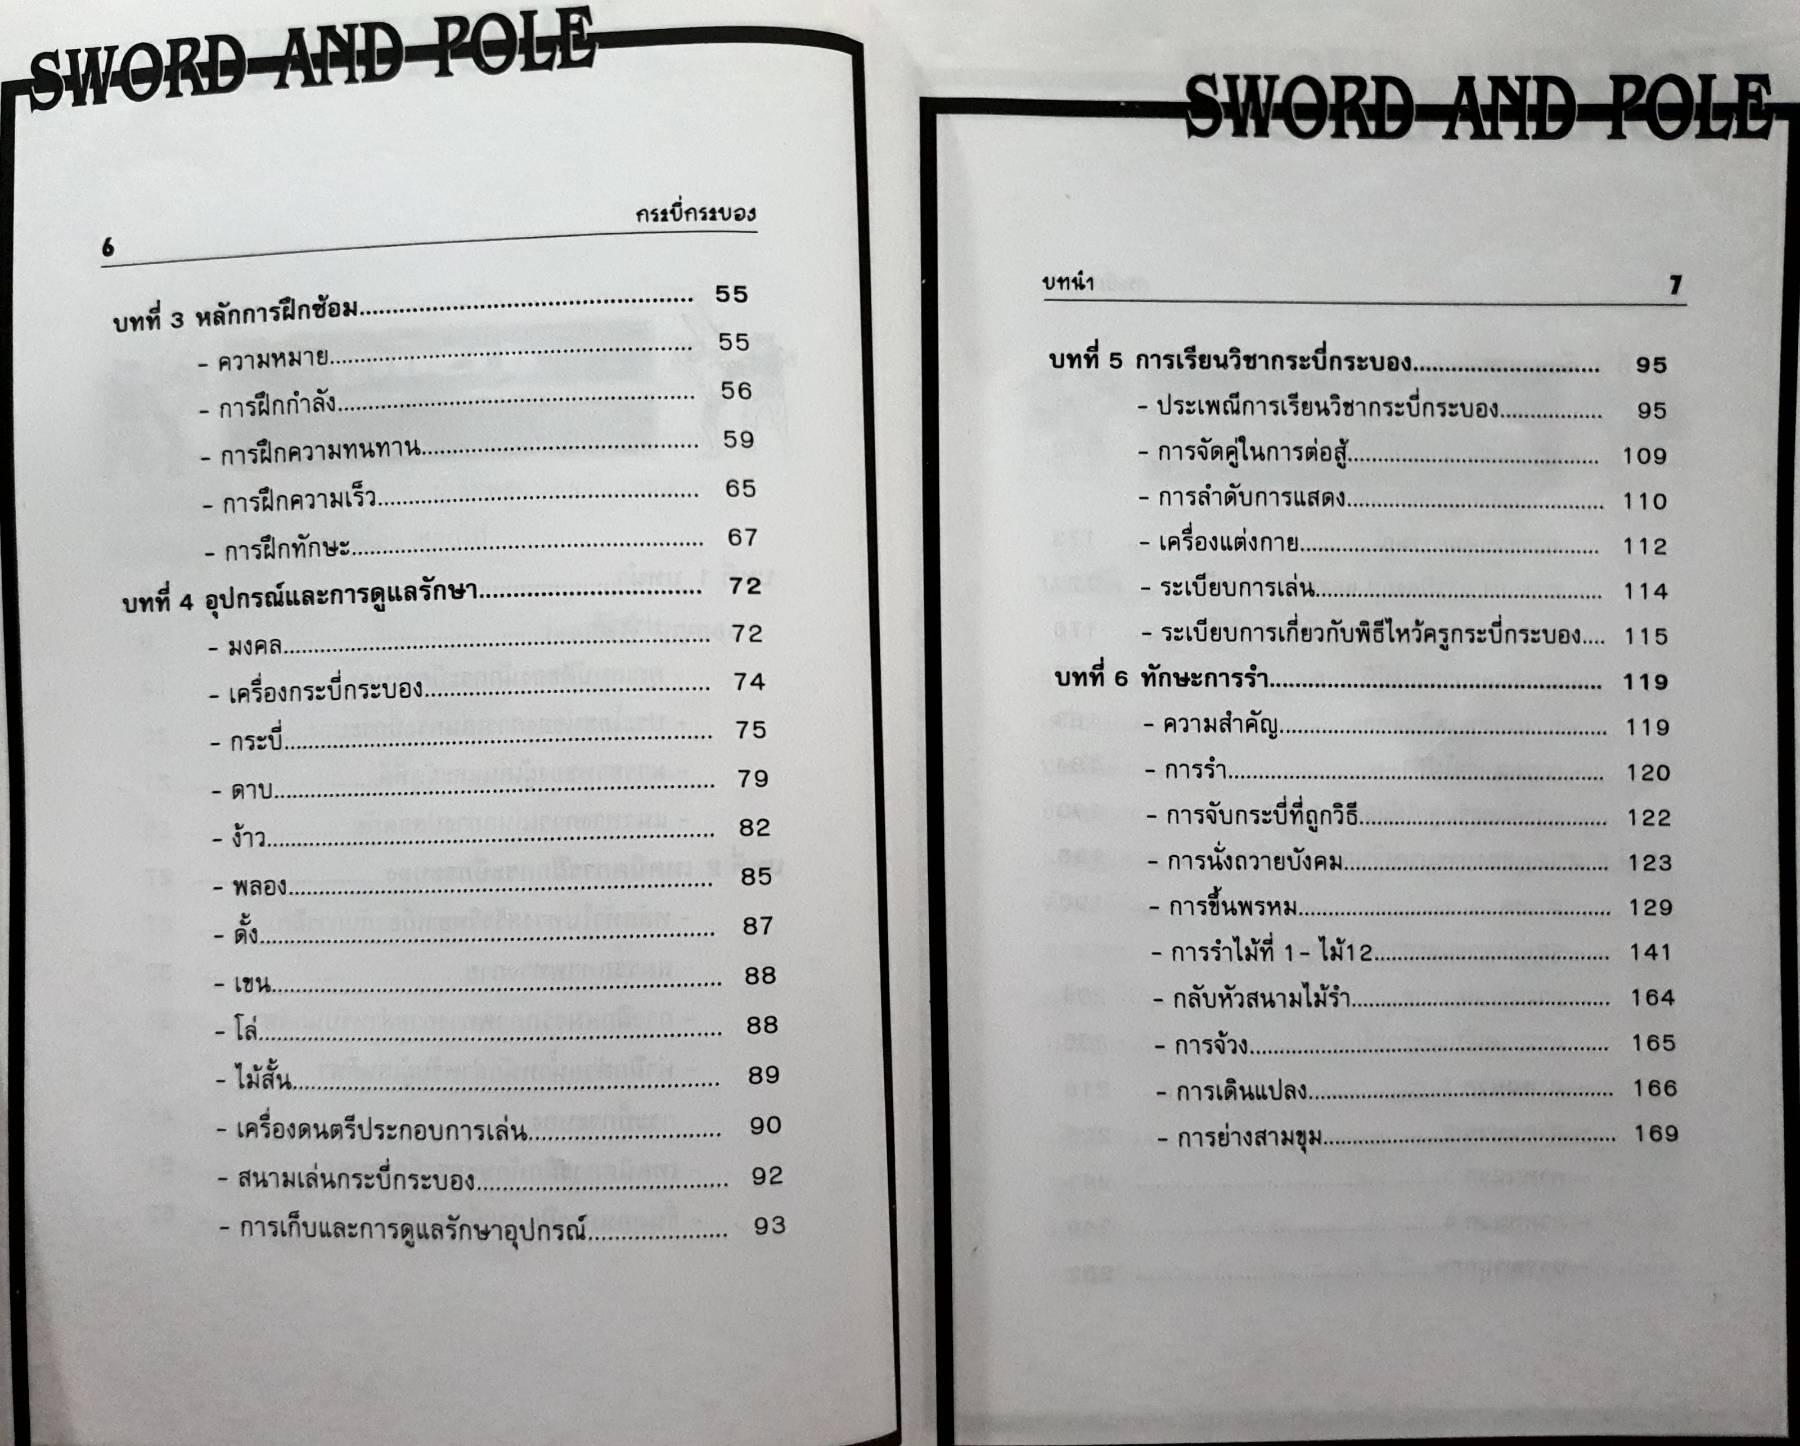 SWORD AND POLE
6 กระบี่กระบอง
บทที่ 3 หลักการฝึกซ้อม.................................................. 55
- ความหมาย...................................................... 55
- การฝึกกำลัง..................................................... 56
- การฝึกความทนทาน......................................... 59
- การฝึกความเร็ว................................................ 65
- การฝึกทักษะ.................................................... 67
บทที่ 4 อุปกรณ์และการดูแลรักษา.................................. 72
- มงคล................................................................ 72
- เครื่องกระบี่กระบอง........................................... 74
- กระบี่................................................................ 75
- ดาบ.................................................................. 79
- ง้าว................................................................... 82
- พลอง................................................................ 85
- ดั้ง.................................................................... 87
- เขน................................................................... 88
- โล่.................................................................... 88
- ไม้สั้น................................................................ 89
- เครื่องดนตรีประกอบการเล่น............................. 90
- สนามเล่นกระบี่กระบอง...................................... 92
- การเก็บและการดูแลรักษาอุปกรณ์..................... 93
SWORD AND POLE
บทนำ 7
บทที่ 5 การเรียนวิชากระบี่กระบอง............................ 95
- ประเพณีการเรียนวิชากระบี่กระบอง................ 95
- การจัดคู่ในการต่อสู้...................................... 109
- การลำดับการแสดง...................................... 110
- เครื่องแต่งกาย............................................. 112
- ระเบียบการเล่น........................................... 114
- ระเบียบการเกี่ยวกับพิธีไหว้ครูกระบี่กระบอง.... 115
บทที่ 6 ทักษะการรำ.................................................. 119
- ความสำคัญ................................................. 119
- การรำ......................................................... 120
- การจับกระบี่ที่ถูกวิธี...................................... 122
- การนั่งถวายบังคม........................................ 123
- การขึ้นพรหม............................................... 129
- การรำไม้ที่ 1 - ไม้12.................................... 141
- กลับหัวสนามไม้รำ........................................ 164
- การจ้วง....................................................... 165
- การเดินแปลง.............................................. 166
- การย่างสามขุม............................................. 169